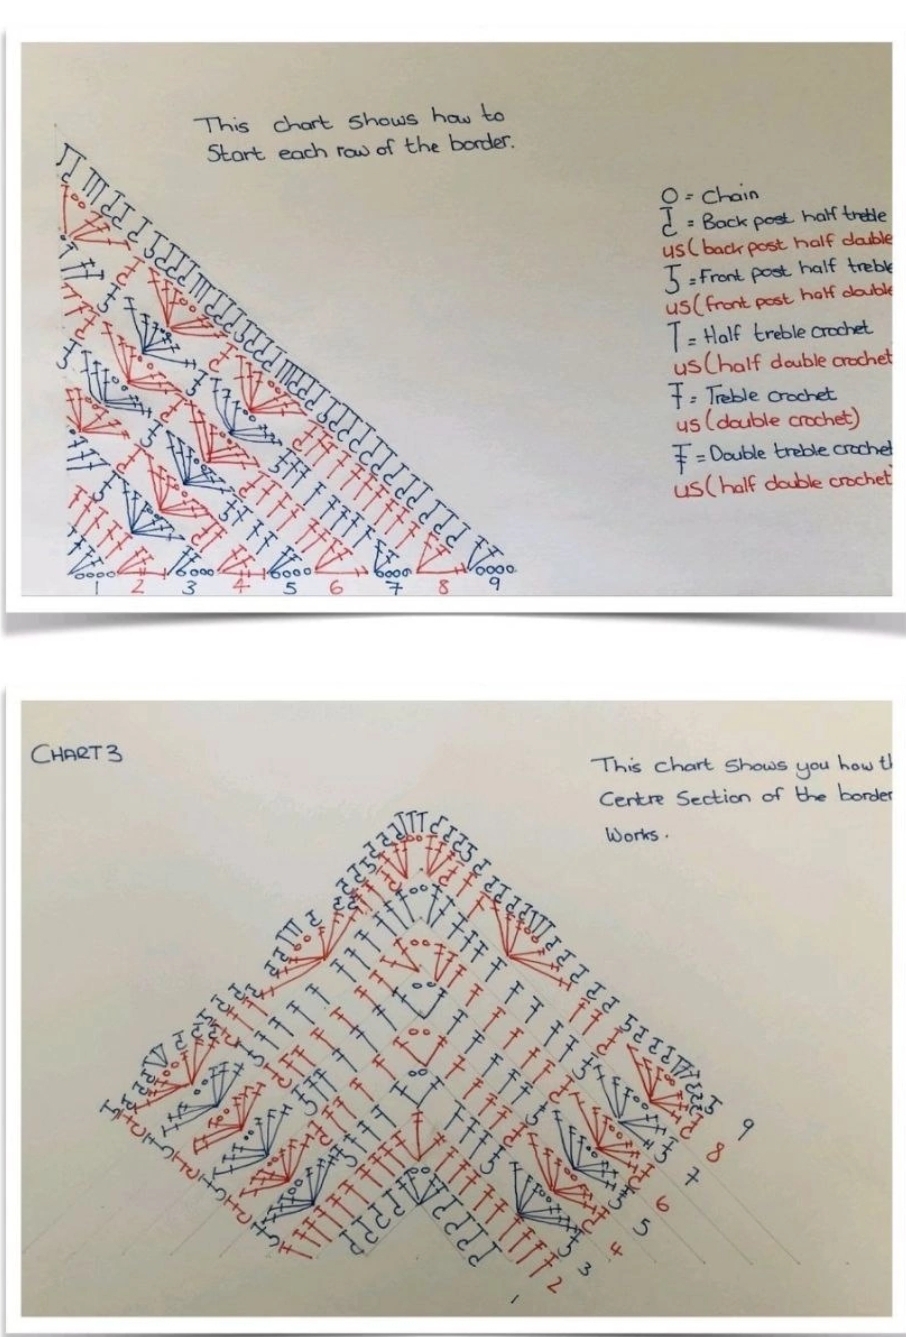 This chart shows how to
Start each row of the border.
O = Chain
= Back post half treble
US (back post half double
= Front post half treble
US (front post half double
= Half treble crochet
US (half double crochet
= Treble crochet
US (double crochet)
= Double treble crochet
US (half double crochet
1 2 3 4 5 6 7 8 9
CHART 3
This chart shows you how
Centre Section of the border
Works.
9
8
7
6
5
4
3
2
1